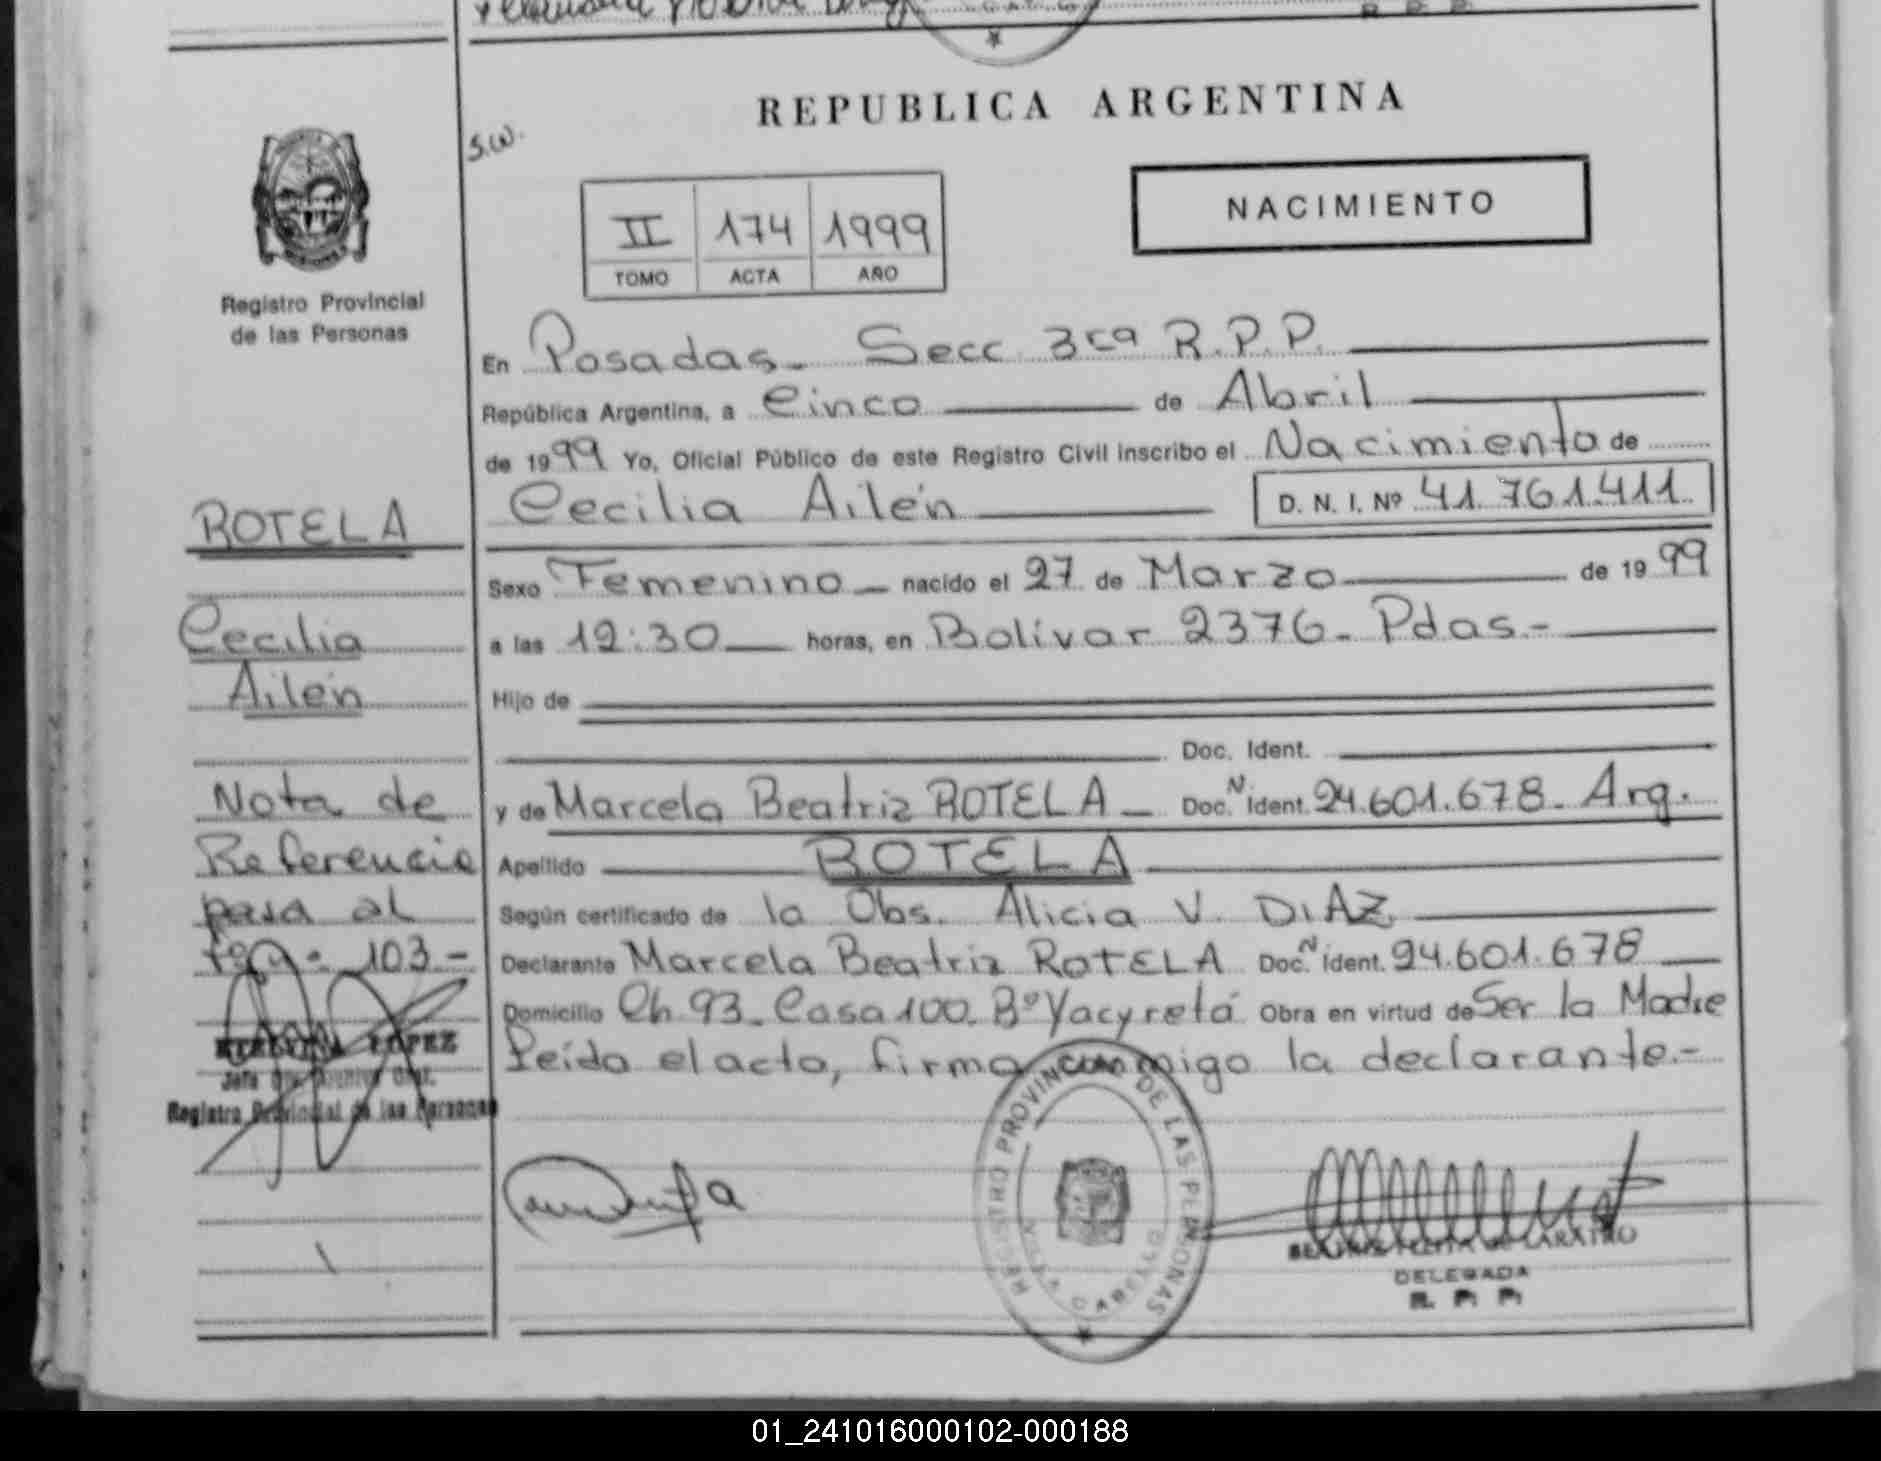 REPUBLICA ARGENTINA
S.W.
NACIMIENTO
II 174 1999
TOMO ACTA AÑO
Registro Provincial
de las Personas
En Posadas - Secc 3ra R.P.P.
República Argentina, a Cinco de Abril
de 1999 Yo, Oficial Público de este Registro Civil inscribo el Nacimiento de
Cecilia Ailén D. N. I. Nº 41.761.411
Sexo Femenino - nacido el 27 de Marzo de 1999
a las 12:30 horas, en Bolívar 2376 - Pdas.-
Hijo de
Doc. Ident.
y de Marcela Beatriz ROTELA - Doc. N Ident. 24.601.678 - Arg.
Apellido ROTELA
Según certificado de la Obs. Alicia V. DIAZ
Declarante Marcela Beatriz ROTELA Doc. N Ident. 24.601.678
Domicilio Ch 93 - Casa 100 - Bº Yacyretá Obra en virtud de Ser la Madre
Leído el acto, firma conmigo la declarante.-
ROTELA
Cecilia
Ailén
Nota de
Referencia
pasa al
103 -
LOPEZ
Registro Provincial de las Personas
REGISTRO PROVINCIAL DE LAS PERSONAS
VILLA CABELLO
DELEGADA
R. P. P.
01_241016000102-000188